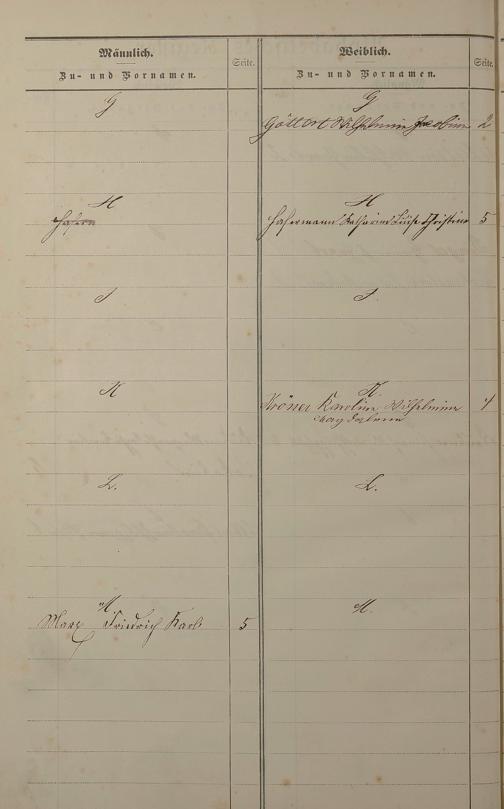 Männlich.
Zu- und Vornamen.
Seite.
Weiblich.
Zu- und Vornamen.
Seite.
G
G
Göttert Wilhelmine Jacobine 2
H
H
Hasermann Katharine Luise Christine 5
J
J
K
K.
Kröner Karoline Wilhelmine 4
Magdalena
L.
L.
M.
M.
Marx Friedrich Karl 5